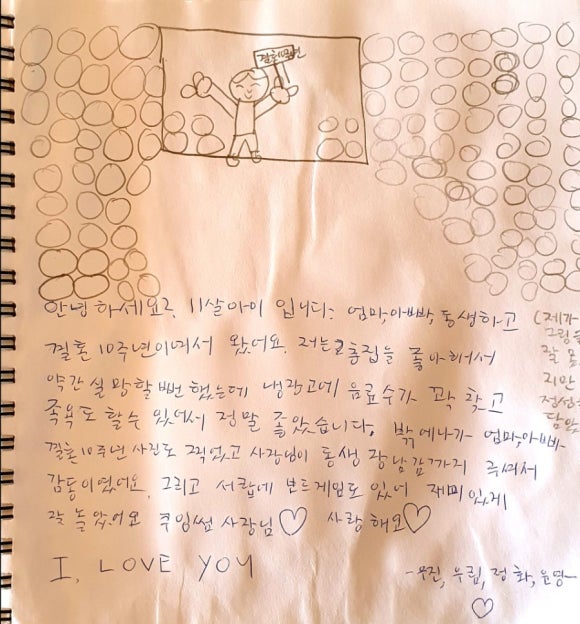 결혼10주년
안녕하세요?, 11살아이 입니다. 엄마,아빠, 동생하고
결혼 10주년이여서 왔어요. 저는 2층집을 좋아해서
약간 실망할뻔 했는데 냉장고에 음료수가 꽉 찾고
족욕도 할수 있어서 정말 좋았습니다. 밖에나가 엄마,아빠
결혼10주년 사진도 찍었고 사장님이 동생 장난감까지 주셔서
감동이였어요. 그리고 서랍에 보드게임도 있어 재미있게
잘 놀았어요 사장님♡ 사랑해요♡
I, LOVE YOU
(제가
그림을
잘 못
지만
정성
담았
우림, 정화, 운영-
♡